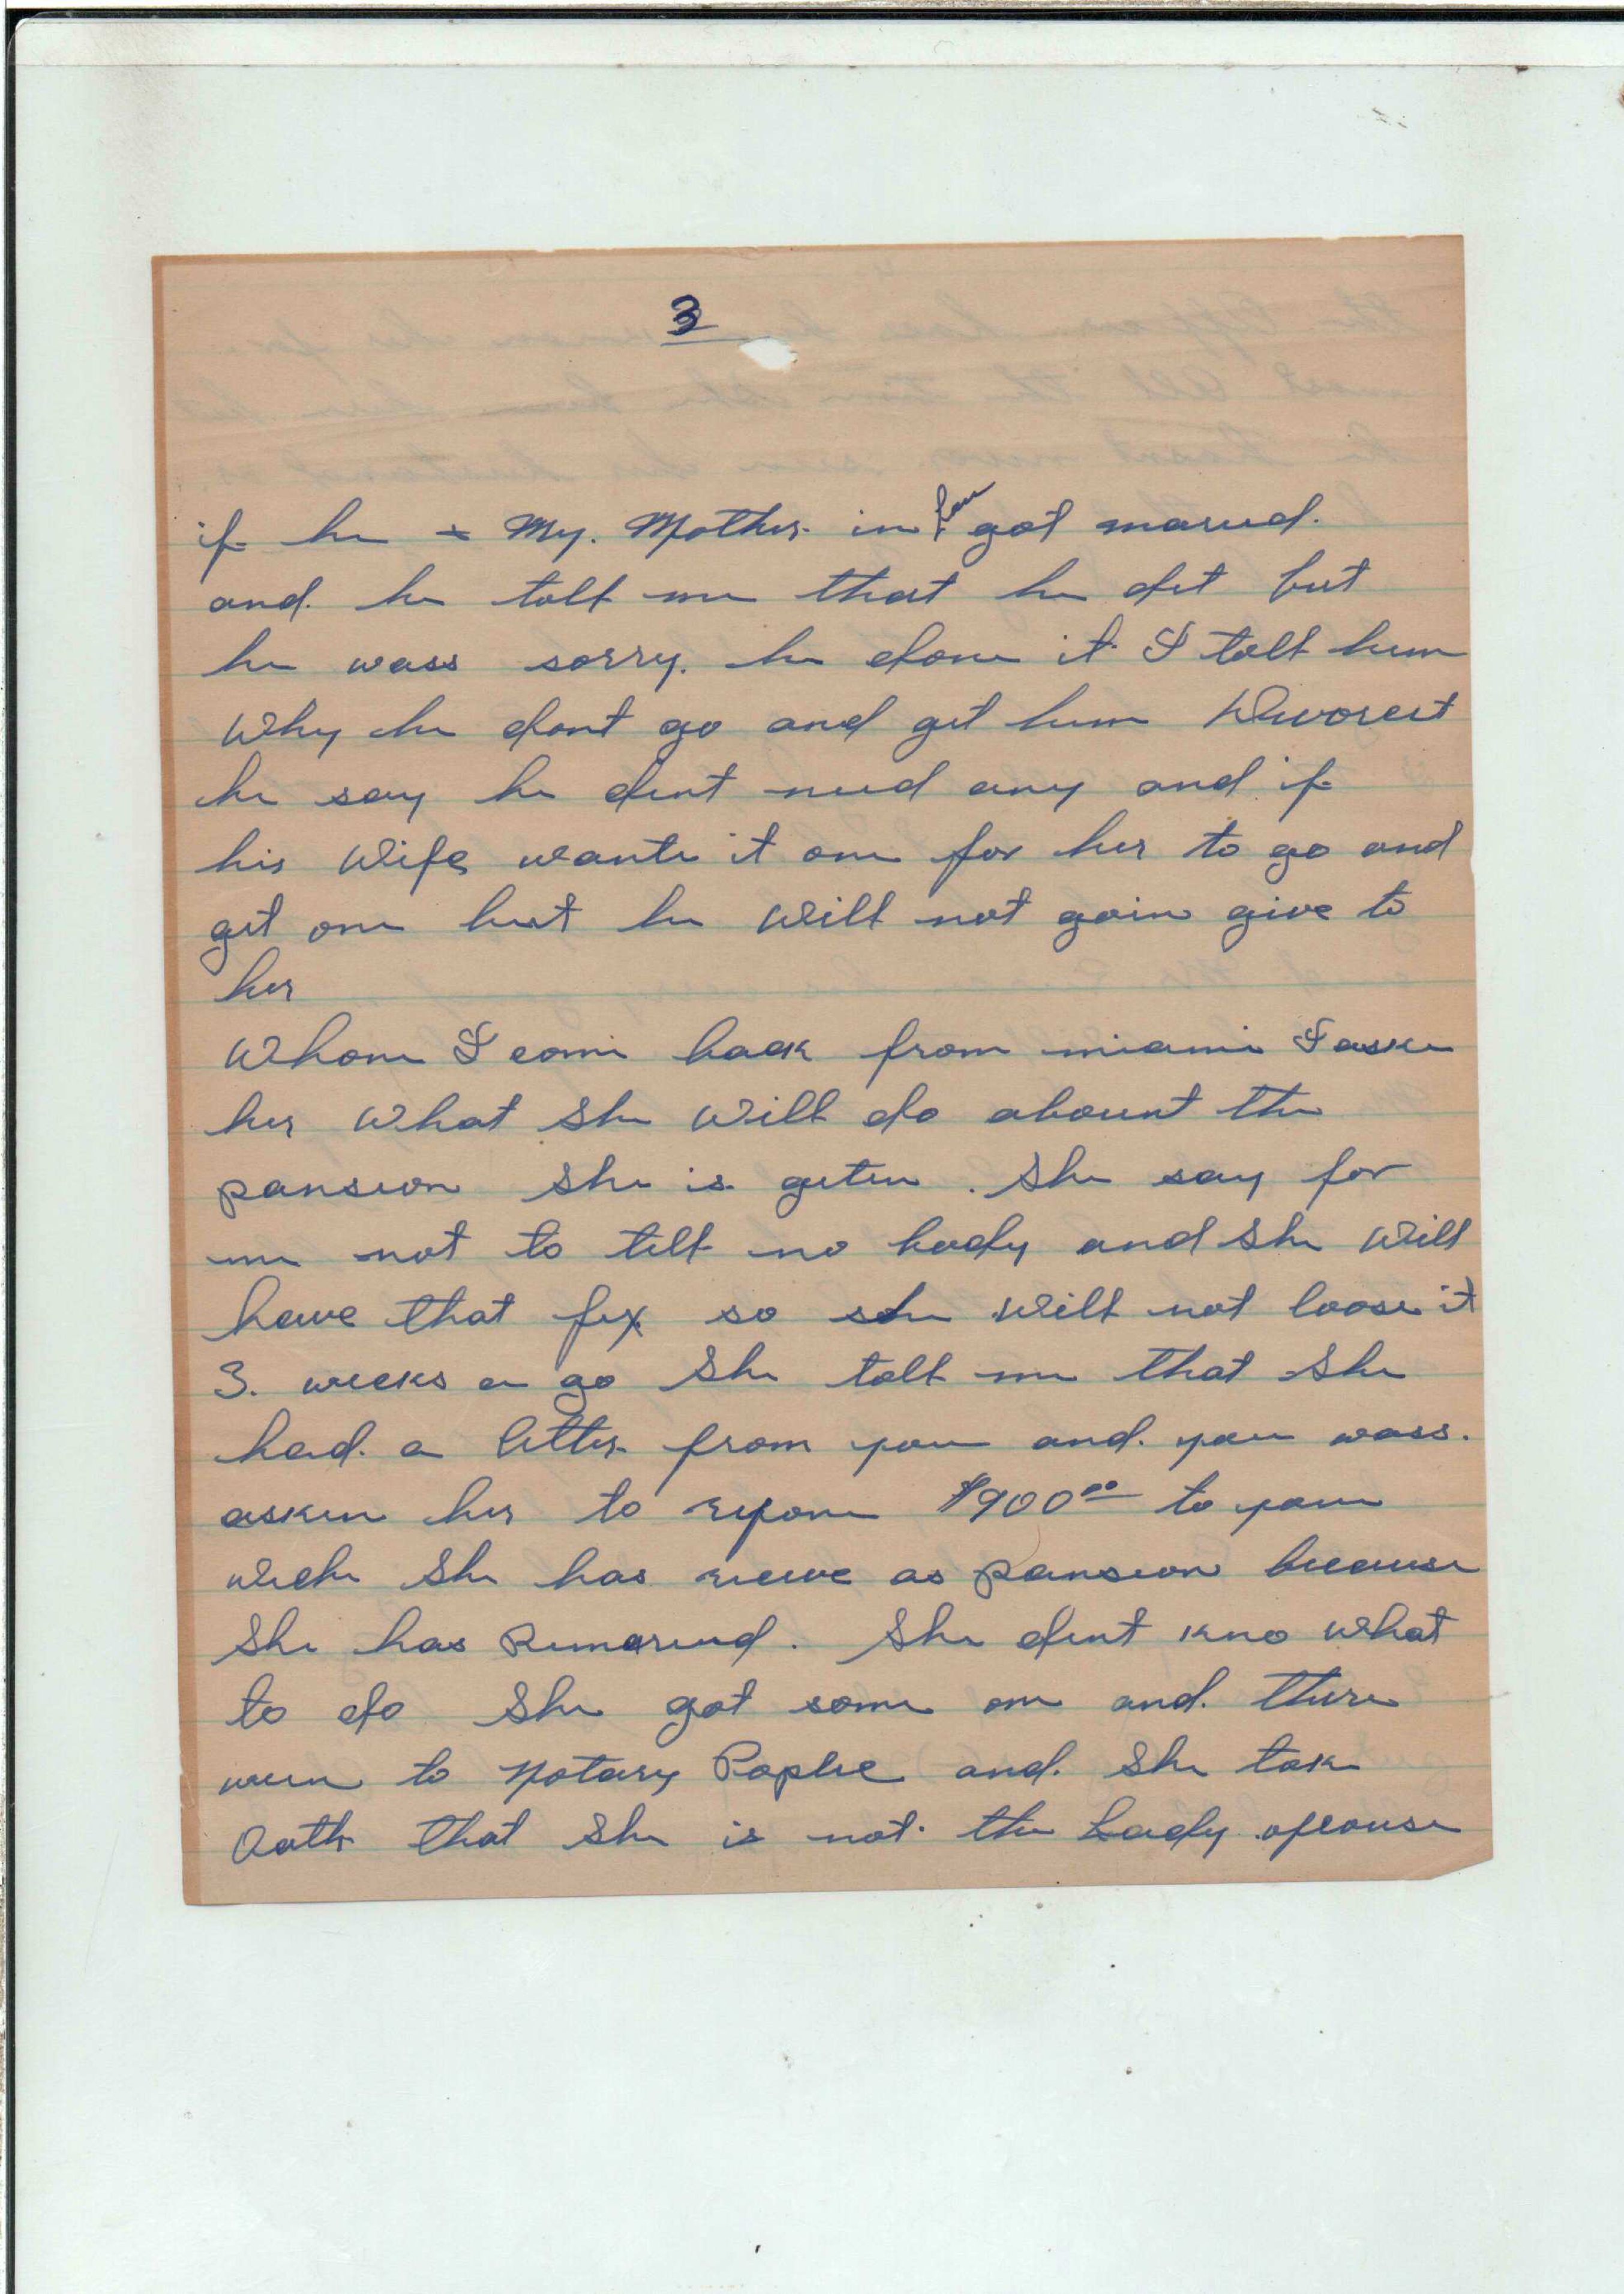 3
if he + My. Mother in law got maried.
and. he tolt me that he det but
he wass sorry. he done it. I tolt him
Why he dont go and get him Divorest
he say he dint need any and if
his Wife wants it one for her to go and
get one but he Will not goin give to
her
Whom I come back from miami I aske
her What She Will do abount the
pansion She is geten. She say for
me not to tell no body and She Will
have that fix so she will not loose it
3. weeks a go She tolt me that She
had. a letter from you and. you wass.
asken her to $900.00 to you
wich She has as pansion because
She has Remaried. She dint kno What
to do She got some one and. there
to Notary Poplic and. She take
Oath that She is not. the Lady